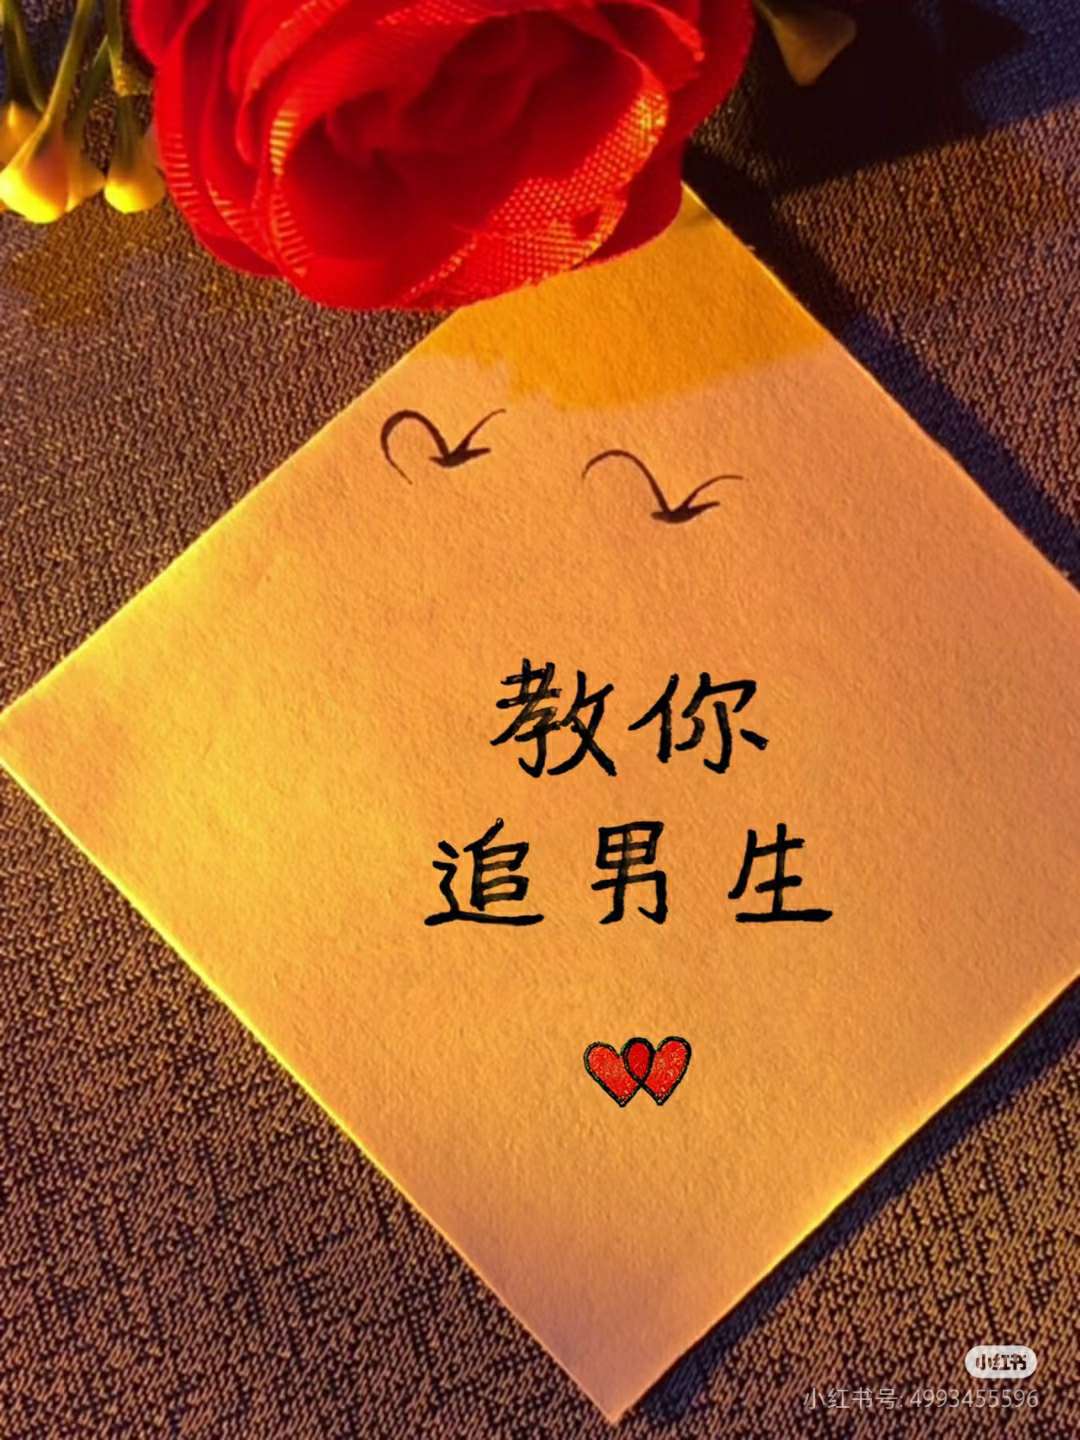 教你
追男生
小红书
小红书号: 4993455596